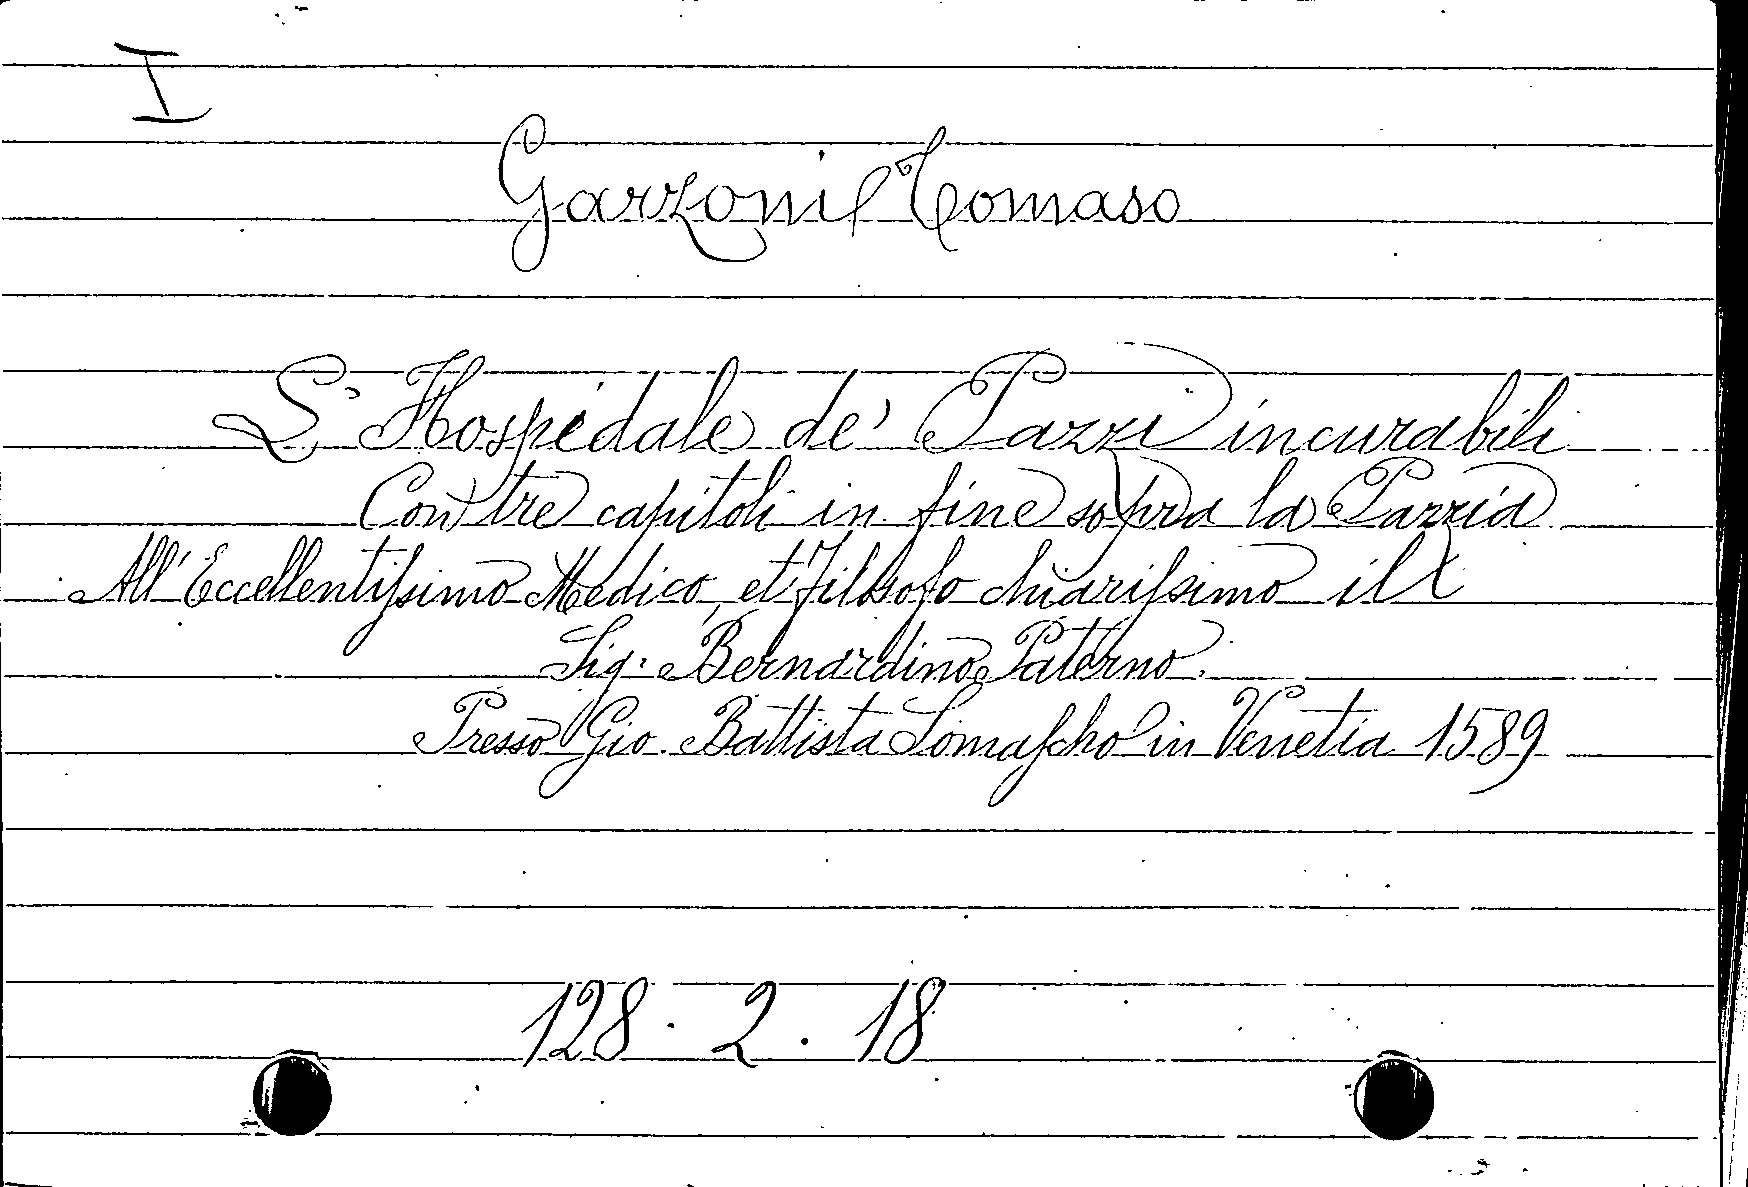 I
Garzoni Tomaso
L'Hospédale de' Pazzi incurabili
Con tre capitoli in fine sopra la Pazzia
All' Eccellentiſsimo Medico, et Filosofo chiariſsimo il
Sig. Bernardino Paterno.
Presso Gio. Battista Somaſcho in Venetia 1589
128. 2. 18